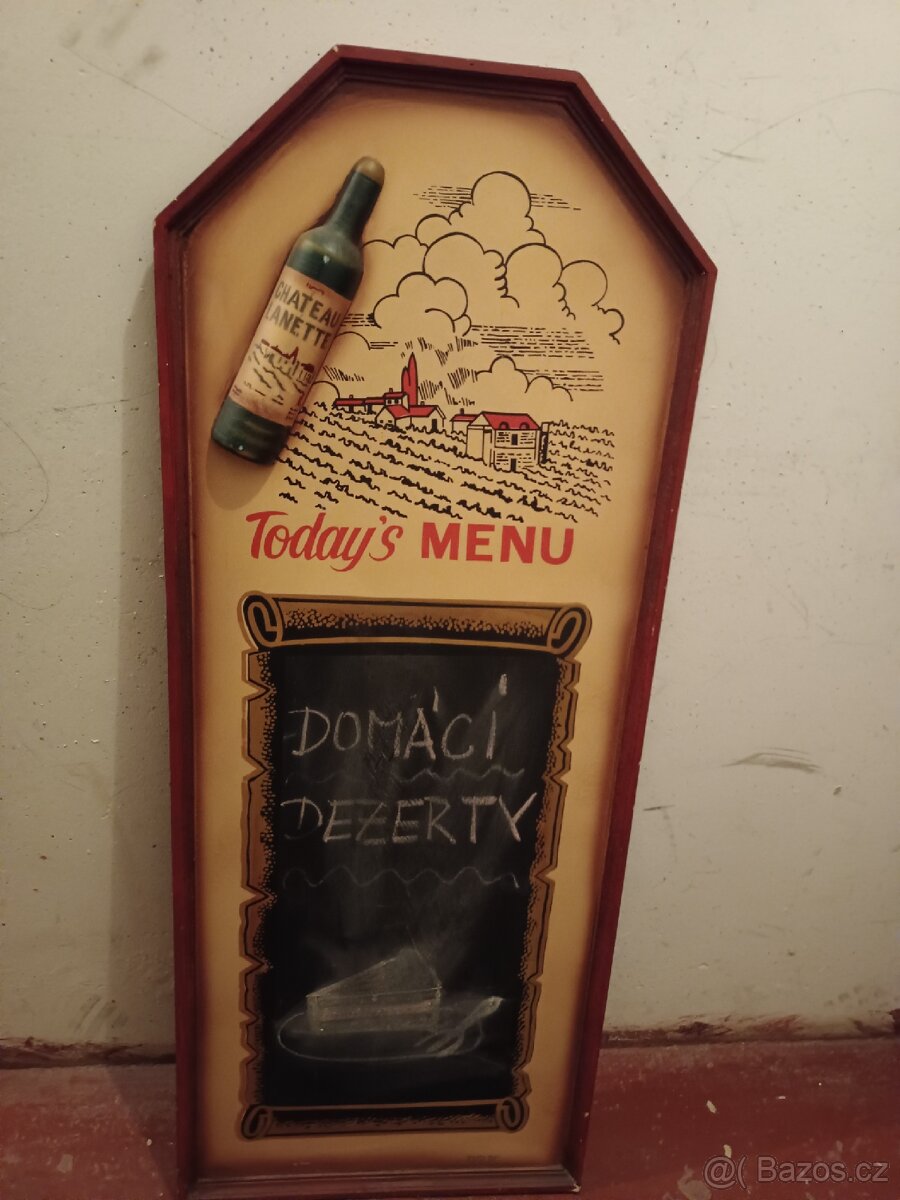 CHATEAU
LANETTE
Today's MENU
DOMÁCÍ
DEZERTY
@( Bazos.cz